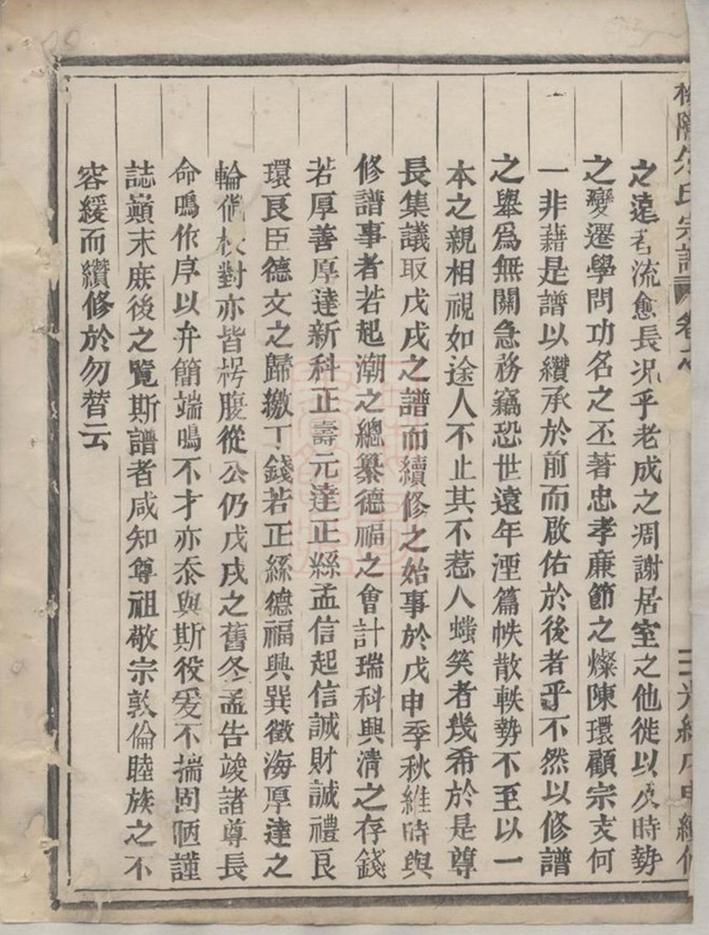 氏宗譜 卷之
三 光緒戊申續修
之遠者流愈長況乎老成之凋謝居室之他徙以及時勢
之變遷學問功名之丕著忠孝廉節之燦陳環顧宗支何
一非藉是譜以纘承於前而啟佑於後者乎不然以修譜
之舉爲無關急務竊恐世遠年湮篇帙散軼勢不至以一
本之親相視如途人不止其不惹人蚩笑者幾希於是尊
長集議取戊戌之譜而續修之始事於戊申季秋維時與
修譜事者若起潮之總纂德福之會計瑞科與清之存錢
若厚善厚達新科正壽元達正縣孟信起信誠財誠禮良
環良臣德文之歸繳丁錢若正縣德福興巽徵海厚達之
輪備校對亦皆枵腹從公仍戊戌之舊冬孟告竣諸尊長
命鳴作序以弁簡端鳴不才亦忝與斯役爰不揣固陋謹
誌巔末庶後之覽斯譜者咸知尊祖敬宗敦倫睦族之不
容緩而纘修於勿替云